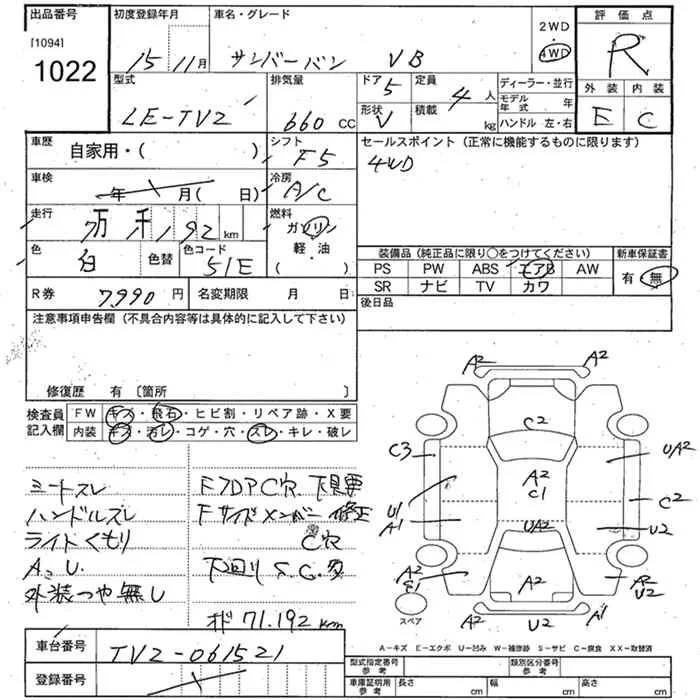 出品番号
[1094]
1022
初度登録年月
15 11月
車名・グレード
サンバーバン VB
2WD
4WD
評価点
R
外装 内装
E C
型式
LE-TV2
排気量
660 CC
ドア 5
形状 V
定員 4 人
積載 kg
ディーラー・並行
モデル年式 年
ハンドル 左・右
車歴 自家用・( )
シフト F5
セールスポイント (正常に機能するものに限ります)
4WD
車検 年 月( 日)
冷房 A/C
走行 7万 1千 192 km
燃料
ガソリン
軽・油
( )
色 白 色替 色コード 51E
装備品 (純正品に限り○をつけてください)
新車保証書
PS PW ABS エアB AW
SR ナビ TV カワ
有 無
R券 7,990 円 名変期限 月 日
後日品
注意事項申告欄 (不具合内容等は具体的に記入して下さい)
修復歴 有 〔箇所 〕
検査員記入欄
FW キズ・飛石・ヒビ割・リペア跡・X要
内装 キズ・汚レ・コゲ・穴・スレ・キレ・破レ
シートスレ
ハンドルスレ
ライトくもり
A. U.
外装つや無し
FフロアC穴 下見要
Fサイドメンバー修正
C穴
下回り S.C.多
オド 71.192 km
A2
A2
C2
C3
UA2
A2
C1
U1
A1
C2
UA2
U2
A2
E1
A2
A2
U2
A2
U2
A1
スペア
A-キズ E-エクボ U-凹み W-補修跡 S-サビ C-腐食 XX-取替済
車台番号 TV2-061521
登録番号
型式指定番号 参考
類別区分番号 参考
車庫証明用 参考 長さ cm 幅 cm 高さ cm